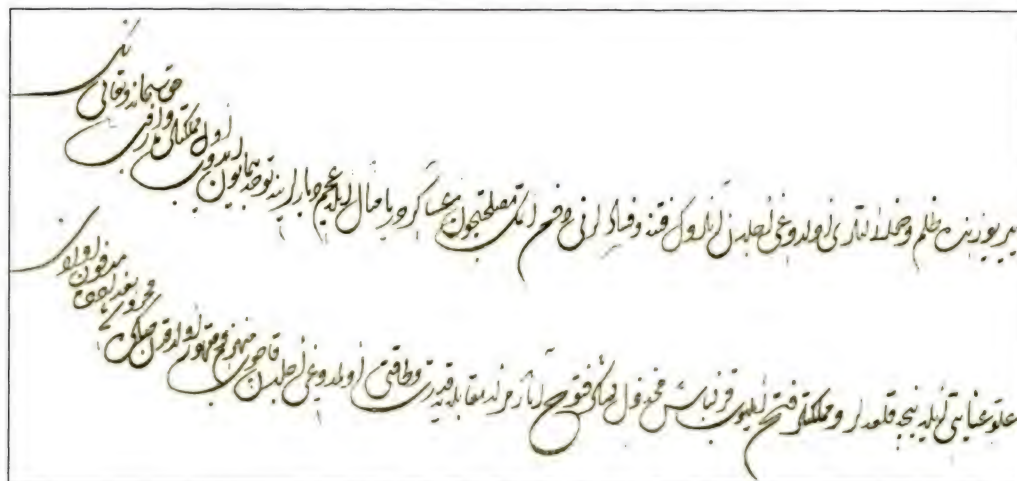 یر یوزینه ظلم و اولدوغی اجلدن انلروک فتنه و فسادلرنی دفع ایتمک مصلحتیچون عساکر دریا مثال ایله عجم دیارلرینه توجه همایون ایدوب اول حق سبحانه و تعالی نک
علو عنایتی ایله نیجه قلعه لر و مملکتلر فتح ایلیوب قزلباش مخذول فتوح آثارمزله مقابله یه قدرتی و طاقتی اولمدوغی اجلدن قاچوب منهزم و مقهور اولدقدن صکره محروسه بغدادده مدفون اولان